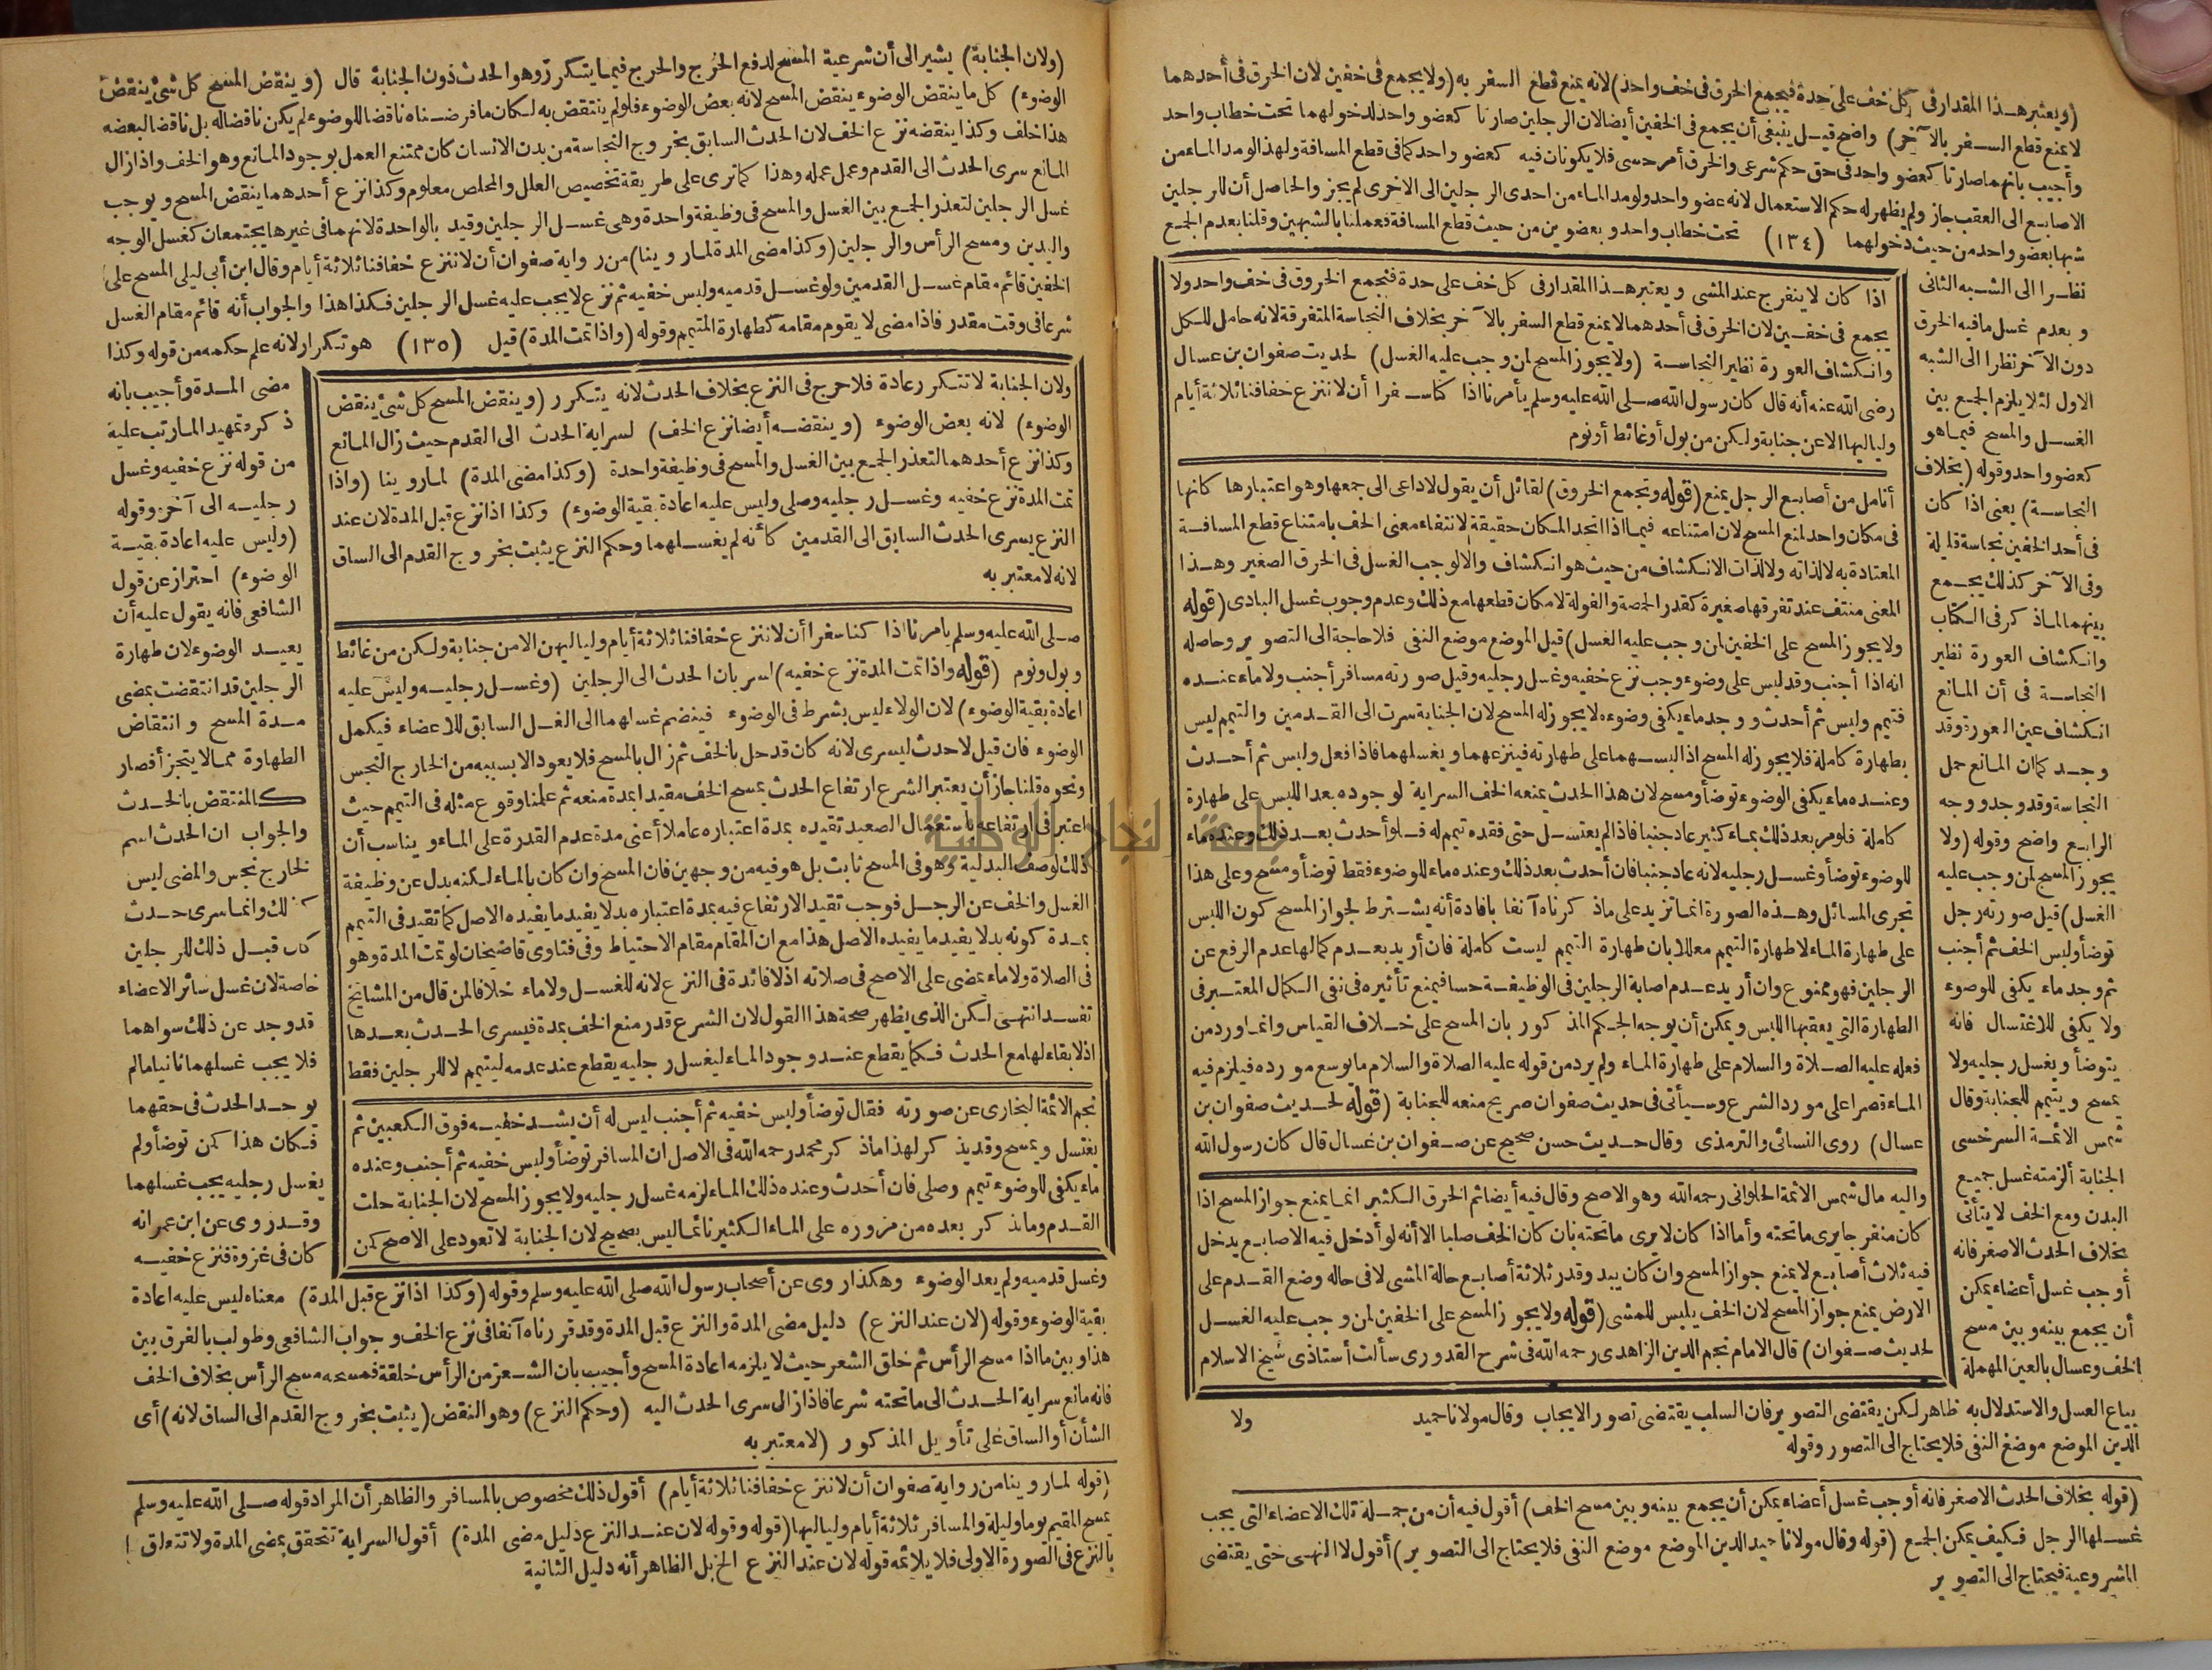 (ويعتبر هذا المقدار فى كل خف على حدة فيجمع الخرق فى خف واحد) لانه يمنع قطع السفر به (ولا يجمع فى خفين لان الخرق فى أحدهما
لا يمنع قطع السفر بالآخر) واضح قيل ينبغى أن يجمع فى الخفين أيضا لان الرجلين صارتا كعضو واحد لدخولهما تحت خطاب واحد
وأجيب بانهما صارتا كعضو واحد فى حق حكم شرعى والخرق أمر حسى فلا يكونان فيه كعضو واحد كما فى قطع المسافة ولهذا لو مد الماء من
الاصابع الى العقب جاز ولم يظهر له حكم الاستعمال لانه عضو واحد ولو مد الماء من احدى الرجلين الى الاخرى لم يجز والحاصل أن للرجلين
شبها بعضو واحد من حيث دخولهما (١٣٤) تحت خطاب واحد وبعضوين من حيث قطع المسافة فعملنا بالشبهين وقلنا بعدم الجمع
نظرا الى الشبه الثانى
وبعدم غسل ما فيه الخرق
دون الآخر نظرا الى الشبه
الاول لئلا يلزم الجمع بين
الغسل والمسح فيما هو
كعضو واحد وقوله (بخلاف
النجاسة) يعنى اذا كان
فى أحد الخفين نجاسة قليلة
وفى الآخر كذلك يجمع
بينهما لما ذكر فى الكتاب
وانكشاف العورة نظير
النجاسة فى أن المانع
انكشاف عين العورة وقد
وجد كما ان المانع حمل
النجاسة وقد وجد ووجه
الرابع واضح وقوله (ولا
يجوز المسح لمن وجب عليه
الغسل) قيل صورته رجل
توضأ ولبس الخف ثم أجنب
ثم وجد ماء يكفى للوضوء
ولا يكفى للاغتسال فانه
يتوضأ ويغسل رجليه ولا
يمسح ويتيمم للجنابة وقال
شمس الائمة السرخسى
الجنابة ألزمته غسل جميع
البدن ومع الخف لا يتأتى
بخلاف الحدث الاصغر فانه
أوجب غسل أعضاء يمكن
أن يجمع بينه وبين مسح
الخف وعسال بالعين المهملة
اذا كان لا ينفرج عند المشى ويعتبر هذا المقدار فى كل خف على حدة فتجمع الخروق فى خف واحد ولا
يجمع فى خفين لان الخرق فى أحدهما لا يمنع قطع السفر بالآخر بخلاف النجاسة المتفرقة لانه حامل للكل
وانكشاف العورة نظير النجاسة (ولا يجوز المسح لمن وجب عليه الغسل) لحديث صفوان بن عسال
رضى الله عنه أنه قال كان رسول الله صلى الله عليه وسلم يأمرنا اذا كنا سفرا أن لا ننزع خفافنا ثلاثة أيام
ولياليها الا عن جنابة ولكن من بول أو غائط أو نوم
أنامل من أصابع الرجل يمنع (قوله وتجمع الخروق) لقائل أن يقول لا داعى الى جمعها وهو اعتبارها كانها
فى مكان واحد لمنع المسح لان امتناعه فيما اذا اتحد المكان حقيقة لانتفاء معنى الخف بامتناع قطع المسافة
المعتادة به لا لذاته ولا لذات الانكشاف من حيث هو انكشاف والا لوجب الغسل فى الخرق الصغير وهذا
المعنى منتف عند تفرقها صغيرة كقدر الحمصة والفولة لامكان قطعها مع ذلك وعدم وجوب غسل البادى (قوله
ولا يجوز المسح على الخفين لمن وجب عليه الغسل) قيل الموضع موضع النفى فلا حاجة الى التصوير وحاصله
انه اذا أجنب وقد لبس على وضوء وجب نزع خفيه وغسل رجليه وقيل صورته مسافر أجنب ولا ماء عنده
فتيمم ولبس ثم أحدث ووجد ماء يكفى وضوءه لا يجوز له المسح لان الجنابة سرت الى القدمين والتيمم ليس
بطهارة كاملة فلا يجوز له المسح اذا لبسهما على طهارته فينزعهما ويغسلهما فاذا فعل ولبس ثم أحدث
وعنده ماء يكفى الوضوء توضأ ومسح لان هذا الحدث يمنعه الخف السراية لوجوده بعد اللبس على طهارة
كاملة فلو مر بعد ذلك بماء كثير عاد جنبا فاذا لم يغتسل حتى فقده تيمم له فلو أحدث بعد ذلك وعنده ماء
للوضوء توضأ وغسل رجليه لانه عاد جنبا فان أحدث بعد ذلك وعنده ماء للوضوء فقط توضأ ومسح وعلى هذا
تجرى المسائل وهذه الصورة انما تزيد على ما ذكرناه آنفا بافادة أنه يشترط لجواز المسح كون اللبس
على طهارة الماء لا طهارة التيمم معللا بان طهارة التيمم ليست كاملة فان أريد بعدم كمالها عدم الرفع عن
الرجلين فهو ممنوع وان أريد عدم اصابة الرجلين فى الوظيفة حسا فيمنع تأثيره فى نفى الكمال المعتبر فى
الطهارة التى يعقبها اللبس ويمكن أن يوجه الحكم المذكور بان المسح على خلاف القياس وانما ورد من
فعله عليه الصلاة والسلام على طهارة الماء ولم يرد من قوله عليه الصلاة والسلام ما يوسع مورده فيلزم فيه
الماء قصرا على مورد الشرع وسيأتى فى حديث صفوان صريح منعه للجنابة (قوله لحديث صفوان بن
عسال) روى النسائى والترمذى وقال حديث حسن صحيح عن صفوان بن غسال قال كان رسول الله
واليه مال شمس الائمة الحلوانى رحمه الله وهو الاصح وقال فيه أيضا ثم الخرق الكثير انما يمنع جواز المسح اذا
كان منفرجا يرى ما تحته وأما اذا كان لا يرى ما تحته بان كان الخف صلبا الا أنه لو أدخل فيه الاصابع يدخل
فيه ثلاث أصابع لا يمنع جواز المسح وان كان يبدو قدر ثلاثة أصابع حالة المشى لا فى حاله وضع القدم على
الارض يمنع جواز المسح لان الخف يلبس للمشى (قوله ولا يجوز المسح على الخفين لمن وجب عليه الغسل
لحديث صفوان) قال الامام نجم الدين الزاهدى رحمه الله فى شرح القدورى سألت أستاذى شيخ الاسلام
بياع العسل والاستدلال به ظاهر لكن يقتضى التصوير فان السلب يقتضى تصور الايجاب وقال مولانا حميد
الدين الموضع موضع النفى فلا يحتاج الى التصور وقوله ولا
(قوله بخلاف الحدث الاصغر فانه أوجب غسل أعضاء يمكن أن يجمع بينه وبين مسح الخف) أقول فيه أن من جملة تلك الاعضاء التى يجب
غسلها الرجل فكيف يمكن الجمع (قوله وقال مولانا حميد الدين الموضع موضع النفى فلا يحتاج الى التصوير) أقول لا النهى حتى يقتضى
المشروعية فيحتاج الى التصوير
(ولان الجنابة) يشير الى أن شرعية المسح لدفع الحرج والحرج فيما يتكرر وهو الحدث دون الجنابة قال (وينقض المسح كل شئ ينقض
الوضوء) كل ما ينقض الوضوء ينقض المسح لانه بعض الوضوء فلو لم ينتقض به لكان ما فرضناه ناقضا للوضوء لم يكن ناقضا له بل ناقضا لبعضه
هذا خلف وكذا ينقضه نزع الخف لان الحدث السابق بخروج النجاسة من بدن الانسان كان ممتنع العمل بوجود المانع وهو الخف واذا زال
المانع سرى الحدث الى القدم وعمل عمله وهذا كما ترى على طريقة تخصيص العلل والمخلص معلوم وكذا نزع أحدهما ينقض المسح ويوجب
غسل الرجلين لتعذر الجمع بين الغسل والمسح فى وظيفة واحدة وهى غسل الرجلين وقيد بالواحدة لانهما فى غيرها يجتمعان كغسل الوجه
واليدين ومسح الرأس والرجلين (وكذا مضى المدة لما روينا) من رواية صفوان أن لا ننزع خفافنا ثلاثة أيام وقال ابن أبى ليلى المسح على
الخفين قائم مقام غسل القدمين ولو غسل قدميه ولبس خفيه ثم نزع لا يجب عليه غسل الرجلين فكذا هذا والجواب أنه قائم مقام الغسل
شرعا فى وقت مقدر فاذا مضى لا يقوم مقامه كطهارة المتيمم وقوله (واذا تمت المدة) قيل (١٣٥) هو تكرار لانه علم حكمه من قوله وكذا
مضى المدة وأجيب بانه
ذكره تمهيدا لما رتب عليه
من قوله نزع خفيه وغسل
رجليه الى آخره وقوله
(وليس عليه اعادة بقية
الوضوء) احتراز عن قول
الشافعى فانه يقول عليه أن
يعيد الوضوء لان طهارة
الرجلين قد انتقضت بمضى
مدة المسح وانتقاض
الطهارة مما لا يتجزأ فصار
كالمنتقض بالحدث
والجواب ان الحدث اسم
لخارج نجس والمضى ليس
كذلك وانما سرى حدث
كان قبل ذلك للرجلين
خاصة لان غسل سائر الاعضاء
قد وجد عن ذلك سواهما
فلا يجب غسلهما ثانيا ما لم
يوجد الحدث فى حقهما
فكان هذا كمن توضأ ولم
يغسل رجليه يجب غسلهما
وقد روى عن ابن عمر انه
كان فى غزوة فنزع خفيه
ولان الجنابة لا تتكرر عادة فلا حرج فى النزع بخلاف الحدث لانه يتكرر (وينقض المسح كل شئ ينقض
الوضوء) لانه بعض الوضوء (وينقضه أيضا نزع الخف) لسراية الحدث الى القدم حيث زال المانع
وكذا نزع أحدهما لتعذر الجمع بين الغسل والمسح فى وظيفة واحدة (وكذا مضى المدة) لما روينا (واذا
تمت المدة نزع خفيه وغسل رجليه وصلى وليس عليه اعادة بقية الوضوء) وكذا اذا نزع قبل المدة لان عند
النزع يسرى الحدث السابق الى القدمين كأنه لم يغسلهما وحكم النزع يثبت بخروج القدم الى الساق
لانه لا معتبر به
صلى الله عليه وسلم يامرنا اذا كنا سفرا أن لا ننزع خفافنا ثلاثة أيام ولياليهن الا من جنابة ولكن من غائط
وبول ونوم (قوله واذا تمت المدة نزع خفيه) لسريان الحدث الى الرجلين (وغسل رجليه وليس عليه
اعادة بقية الوضوء) لان الولاء ليس بشرط فى الوضوء فينضم غسلهما الى الغسل السابق للاعضاء فيكمل
الوضوء فان قيل لا حدث ليسرى لانه كان قد حل بالخف ثم زال بالمسح فلا يعود الا بسببه من الخارج النجس
ونحوه قلنا جاز أن يعتبر الشرع ارتفاع الحدث بمسح الخف مقيدا بمدة منعه ثم علمنا وقوع مثله فى التيمم حيث
اعتبر فى ارتفاعه باستعمال الصعيد تقيده بمدة اعتباره عاملا أعنى مدة عدم القدرة على الماء ويناسب أن
ذلك لوصف البدلية وهو فى المسح ثابت بل هو فيه من وجهين فان المسح وان كان بالماء لكنه بدل عن وظيفة
الغسل والخف عن الرجل فوجب تقيد الارتفاع فيه بمدة اعتباره بدلا يفيد ما يفيده الاصل كما تقيد فى التيمم
بمدة كونه بدلا يفيد ما يفيده الاصل هذا مع ان المقام مقام الاحتياط وفى فتاوى قاضيخان لو تمت المدة وهو
فى الصلاة ولا ماء يمضى على الاصح فى صلاته اذ لا فائدة فى النزع لانه للغسل ولا ماء خلافا لمن قال من المشايخ
تفسد انتهى لكن الذى يظهر صحة هذا القول لان الشرع قدر منع الخف بمدة فيسرى الحدث بعدها
اذ لا بقاء لها مع الحدث فكما يقطع عند وجود الماء ليغسل رجليه يقطع عند عدمه ليتيمم لا للرجلين فقط
نجم الائمة البخارى عن صورته فقال توضأ ولبس خفيه ثم أجنب ليس له أن يشد خفيه فوق الكعبين ثم
يغتسل ويمسح وقد يذكر لهذا ما ذكر محمد رحمه الله فى الاصل ان المسافر توضأ ولبس خفيه ثم أجنب وعنده
ماء يكفى للوضوء تيمم وصلى فان أحدث وعنده ذلك الماء لزمه غسل رجليه ولا يجوز المسح لان الجنابة حلت
القدم وما ذكر بعده من مروره على الماء الكثير ثانيا ليس بصحيح لان الجنابة لا تعود على الاصح كمن
وغسل قدميه ولم يعد الوضوء وهكذا روى عن أصحاب رسول الله صلى الله عليه وسلم وقوله (وكذا اذا نزع قبل المدة) معناه ليس عليه اعادة
بقية الوضوء وقوله (لان عند النزع) دليل مضى المدة والنزع قبل المدة وقد قررناه آنفا فى نزع الخف وجواب الشافعى وطولب بالفرق بين
هذا وبين ما اذا مسح الرأس ثم حلق الشعر حيث لا يلزمه اعادة المسح وأجيب بان الشعر من الرأس خلقة فمسحه مسح الرأس بخلاف الخف
فانه مانع سراية الحدث الى ما تحته شرعا فاذا زال سرى الحدث اليه (وحكم النزع) وهو النقض (يثبت بخروج القدم الى الساق لانه) أى
الشأن أو الساق على تأويل المذكور (لا معتبر به
(قوله لما روينا من رواية صفوان أن لا ننزع خفافنا ثلاثة أيام) أقول ذلك مخصوص بالمسافر والظاهر أن المراد قوله صلى الله عليه وسلم
يمسح المقيم يوما وليلة والمسافر ثلاثة أيام ولياليها (قوله وقوله لان عند النزع دليل مضى المدة) أقول السراية تتحقق بمضى المدة ولا تتعلق
بالنزع فى الصورة الاولى فلا يلائمه قوله لان عند النزع الخ بل الظاهر أنه دليل الثانية
جامعة النجاح الوطنية